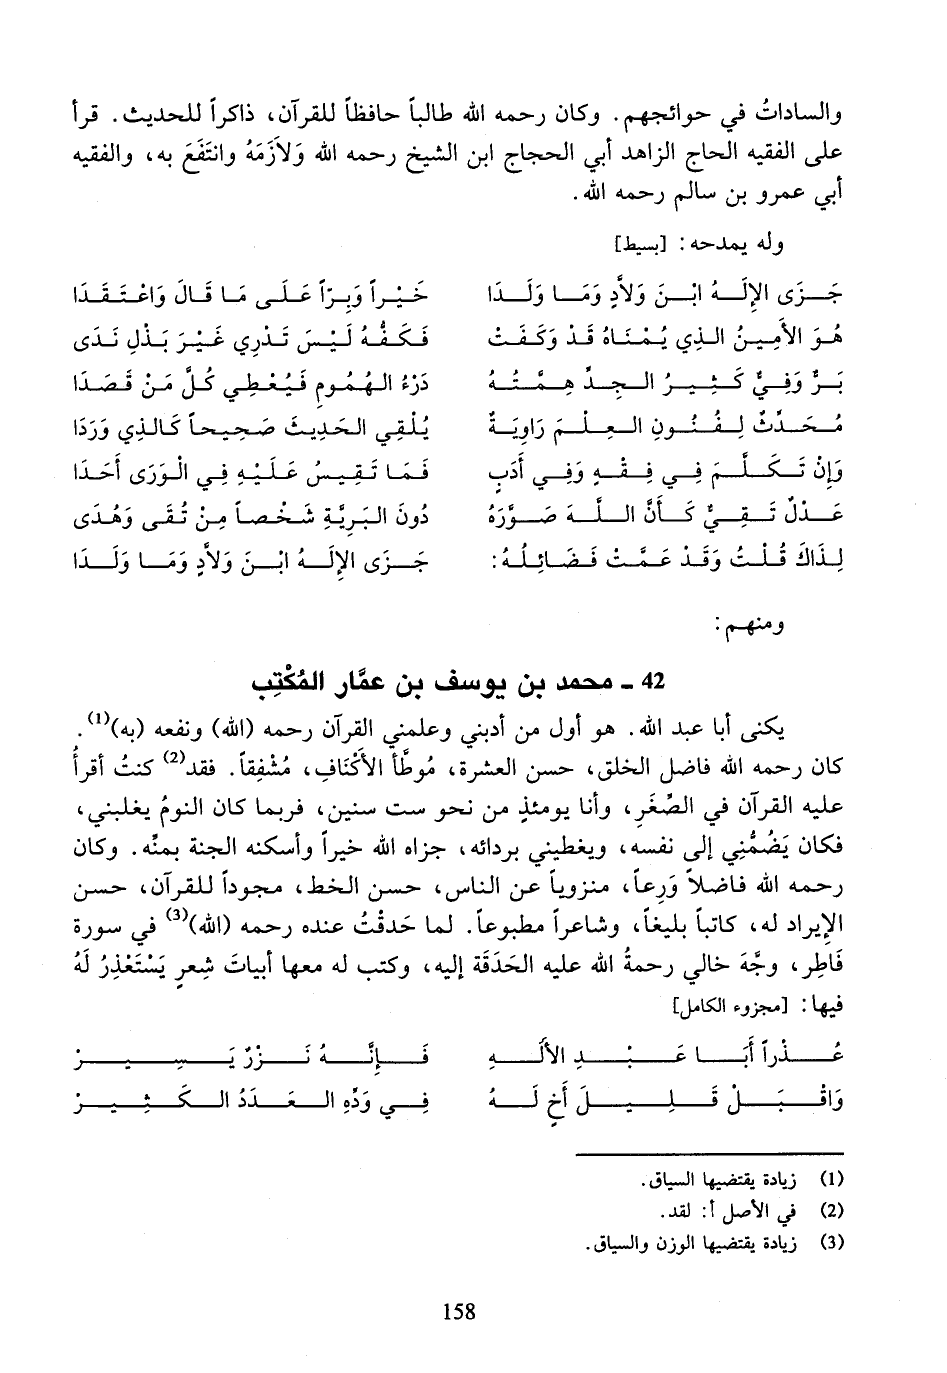 والسادات في حوائجهم. وكان رحمه الله طالباً حافظاً للقرآن، ذاكراً للحديث. قرأ
على الفقيه الحاج الزاهد أبي الحجاج ابن الشيخ رحمه الله وَلازَمَهُ وانتَفَعَ به، والفقيه
أبي عمرو بن سالم رحمه الله.
وله يمدحه: [بسيط]
جَزى الإِلَهُ ابْنَ وَلاَّدٍ وَمَا وَلَدَا خَيْراً وَبِرّاً عَلَى مَا قَالَ وَاعْتَقَدَا
هُوَ الأَمِينُ الذي يُمْنَاهُ قَدْ وَكَفَتْ فَكَفُّهُ لَيْسَ تَدْرِي غَيْرَ بَذْلِ نَدَى
بَرٌّ وَفِيٌّ كَثِيرُ المَجدِ هِمَّتُهُ دَرْءُ الهُمُومِ فَيُعْطِي كُلَّ مَنْ قَصَدَا
مُحَدِّثٌ لِفُنُونِ العِلْمِ رَاوِيَةٌ يُلْقِي الحَدِيثَ صَحِيحاً كَالذِي وَرَدَا
وَإِنْ تَكَلَّمَ فِي فِقْهٍ وَفِي أَدَبٍ فَمَا تَقِيسُ عَلَيْهِ فِي الوَرَى أَحَدَا
عَدْلٌ تَقِيٌّ كَأَنَّ اللَّهَ صَوَّرَهُ دُونَ البَرِيَّةِ شَخْصاً مِنْ تُقًى وَهُدَى
لِذَاكَ قُلْتُ وَقَدْ عَمَّتْ فَضَائِلُهُ: جَزَى الإِلَهُ ابْنَ وَلاَّدٍ وَمَا وَلَدَا
ومنهم:
42 ـ محمد بن يوسف بن عمَّار المُكْتِب
يكنى أبا عبد الله. هو أول من أدبني وعلمني القرآن رحمه (الله) ونفعه (به)(1).
كان رحمه الله فاضل الخلق، حسن العشرة، مُوطَّأ الأَكْنَافِ، مُشْفِقاً. فقد(2) كنتُ أقرأُ
عليه القرآن في الصِّغَرِ، وأنا يومئذٍ من نحو ست سنين، فربما كان النومُ يغلبني،
فكانَ يَضُمُّنِي إلى نفسه، ويغطيني بردائه، جزاه الله خيراً وأسكنه الجنة بمنّه. وكان
رحمه الله فاضلاً وَرِعاً، منزوياً عن الناس، حسن الخط، مجوداً للقرآن، حسن
الإيراد له، كاتباً بليغاً، وشاعراً مطبوعاً. لما حَذقْتُ عنده رحمه (الله)(3) في سورة
فَاطِرٍ، وجَّهَ خالي رحمةُ الله عليه الحَذقَة إليه، وكتب له معها أبيات شِعرٍ يَسْتَعْذِرُ لَهُ
فيها: [مجزوء الكامل]
عُذْراً أَبَا عَبْدِ الأَلَهِ فَإِنَّهُ نَزْرٌ يَسِيرْ
وَاقْبَلْ قَلِيلَ أَخٍ لَهُ فِي وُدِّهِ العَدَدُ الكَثِيرْ
(1) زيادة يقتضيها السياق.
(2) في الأصل أ: لقد.
(3) زيادة يقتضيها الوزن والسياق.
158